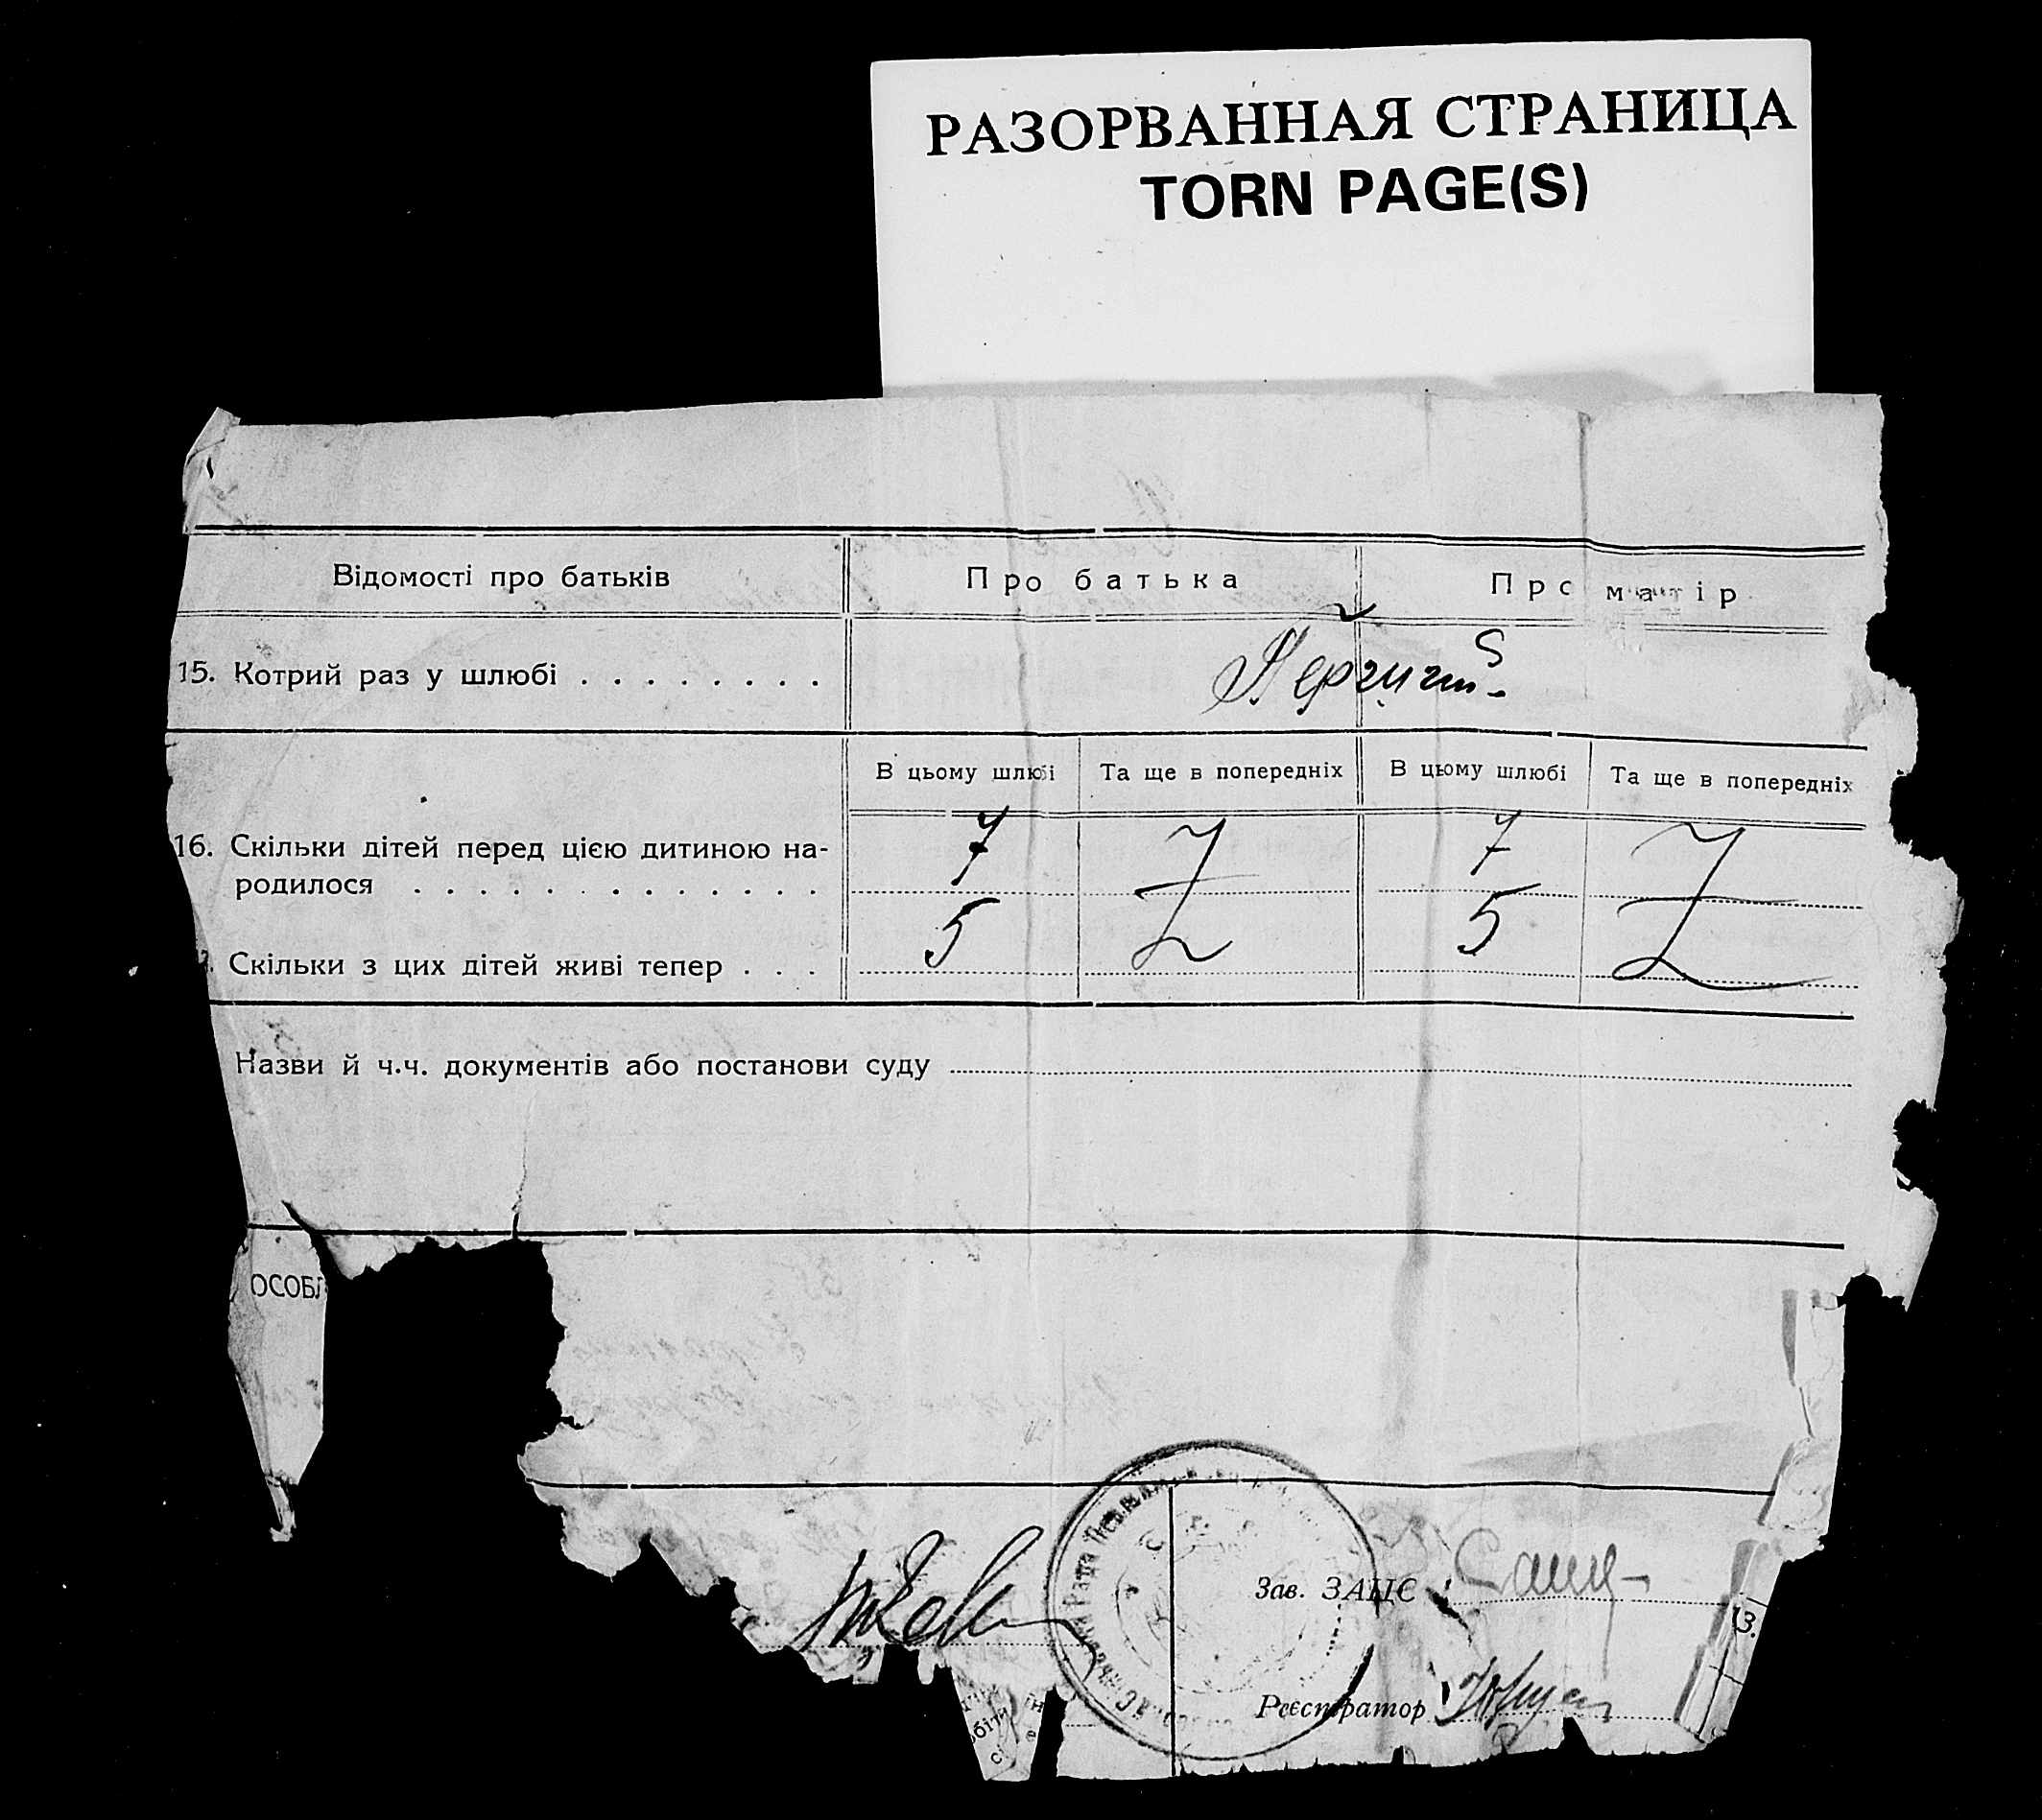 РАЗОРВАННАЯ СТРАНИЦА
TORN PAGE(S)
Відомості про батьків
Про батька
Про матір
15. Котрий раз у шлюбі . . . . . . . .
В цьому шлюбі
Та ще в попередніх
В цьому шлюбі
Та ще в попередніх
16. Скільки дітей перед цією дитиною на-
родилося . . . . . . . . . . . . .
7 Z 7 Z
Скільки з цих дітей живі тепер . . .
5 5
Назви й ч.ч. документів або постанови суду
ОСОБЛ
Рада
Зав. ЗАЦС
Реєстратор
З.